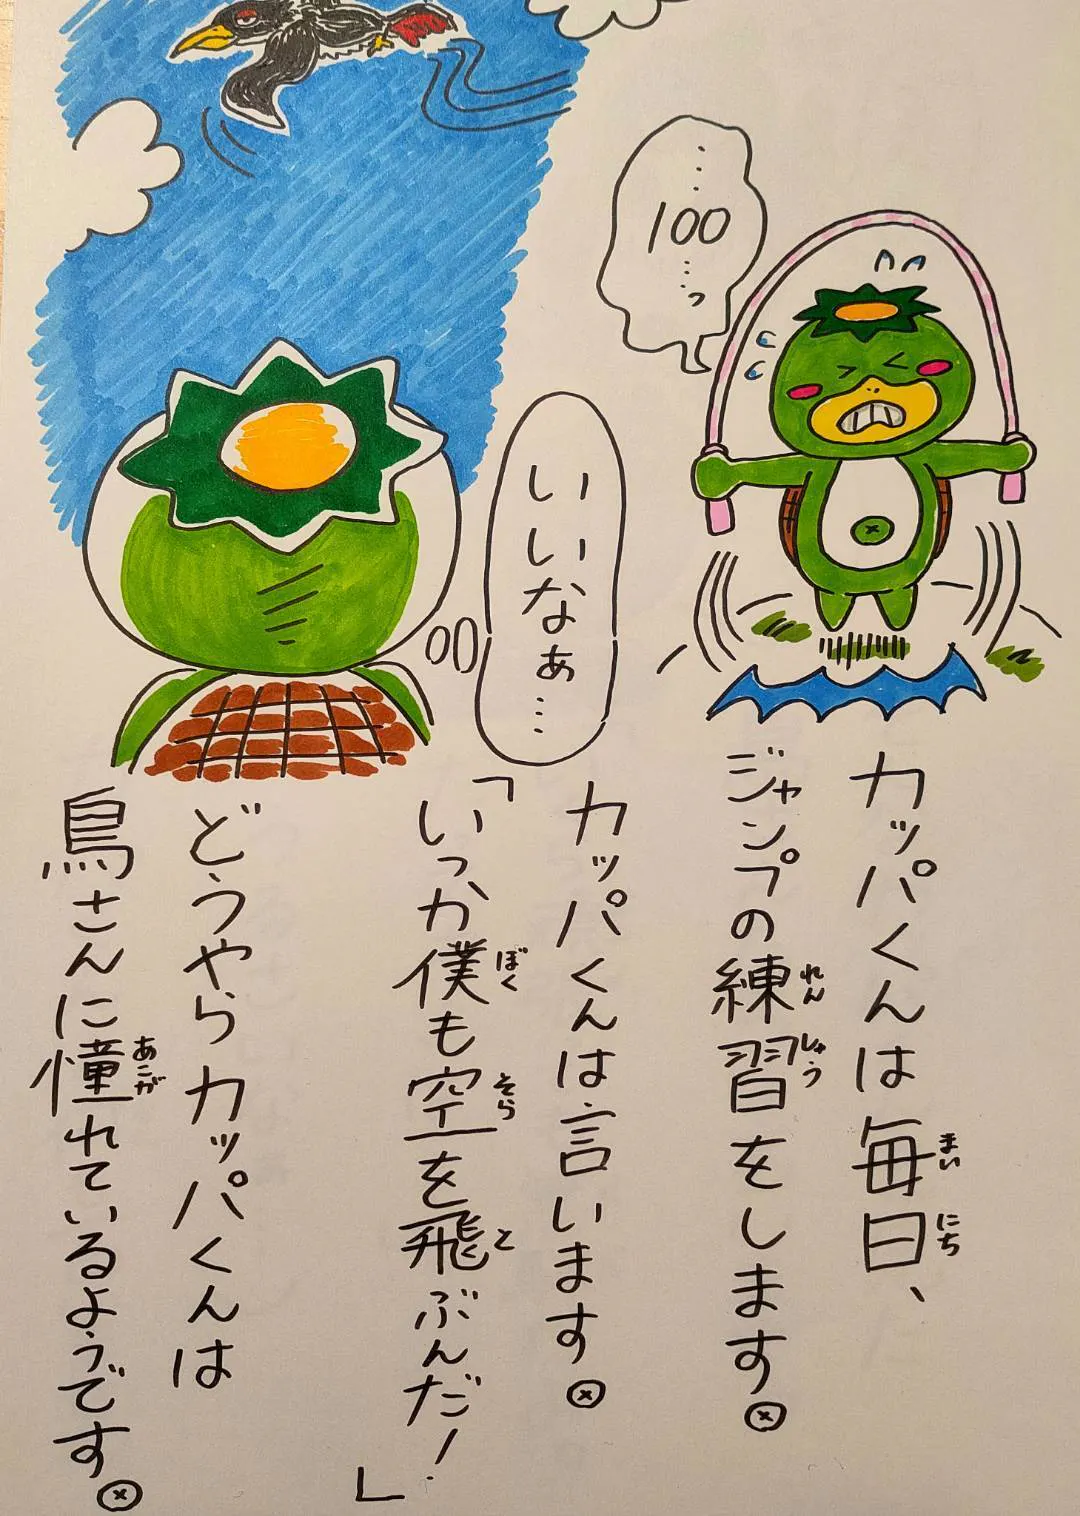 …100…っ
いいなぁ…
カッパくんは毎日、
まいにち
ジャンプの練習をします。
れんしゅう
カッパくんは言います。
「いつか僕も空を飛ぶんだ！」
ぼく そら と
どうやらカッパくんは
鳥さんに憧れているようです。
あこが